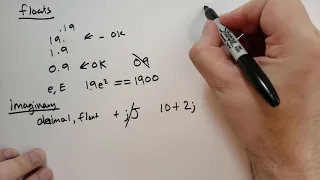 floats
.19
19. ← _ OK
1.9
0.9 ← OK 09
e, E 19e² == 1900
imaginary
decimal, float + j J 10 + 2j